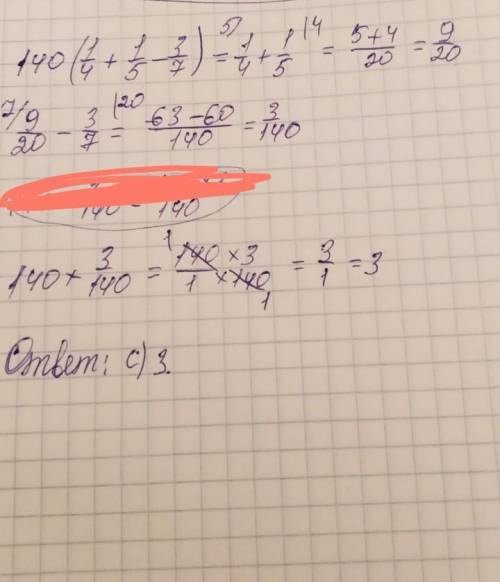 140(1/4 + 1/5 - 3/7) = 5/ 1/4 + 1/5 |4 = 5+4/20 = 9/20
7/ 9/20 - 3/7 |20 = 63-60/140 = 3/140
140 140
140 × 3/140 = 140 × 3/1 × 140 = 3/1 = 3
1 1
Ответ: с) 3.